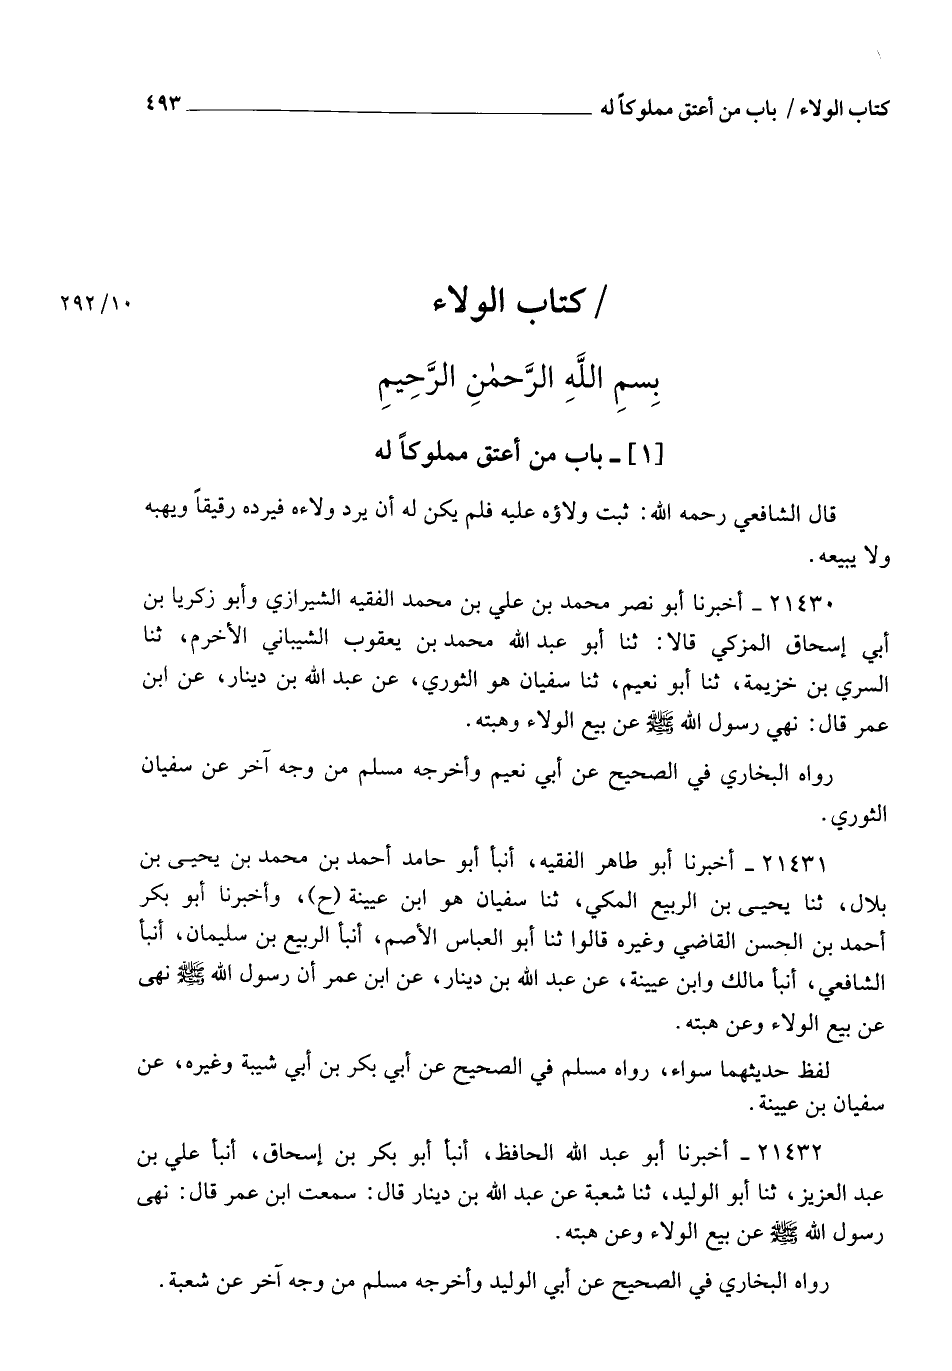 كتاب الولاء / باب من أعتق مملوكاً له ٤٩٣
/ كتاب الولاء ٢٩٢/١٠
بِسمِ اللَّهِ الرَّحمٰنِ الرَّحِيمِ
[١] ـ باب من أعتق مملوكاً له
قال الشافعي رحمه الله: ثبت ولاؤه عليه فلم يكن له أن يرد ولاءه فيرده رقيقاً ويهبه
ولا يبيعه.
٢١٤٣٠ ـ أخبرنا أبو نصر محمد بن علي بن محمد الفقيه الشيرازي وأبو زكريا بن
أبي إسحاق المزكي قالا: ثنا أبو عبد الله محمد بن يعقوب الشيباني الأخرم، ثنا
السري بن خزيمة، ثنا أبو نعيم، ثنا سفيان هو الثوري، عن عبد الله بن دينار، عن ابن
عمر قال: نهي رسول الله ﷺ عن بيع الولاء وهبته.
رواه البخاري في الصحيح عن أبي نعيم وأخرجه مسلم من وجه آخر عن سفيان
الثوري.
٢١٤٣١ ـ أخبرنا أبو طاهر الفقيه، أنبأ أبو حامد أحمد بن محمد بن يحيى بن
بلال، ثنا يحيى بن الربيع المكي، ثنا سفيان هو ابن عيينة (ح)، وأخبرنا أبو بكر
أحمد بن الحسن القاضي وغيره قالوا ثنا أبو العباس الأصم، أنبأ الربيع بن سليمان، أنبأ
الشافعي، أنبأ مالك وابن عيينة، عن عبد الله بن دينار، عن ابن عمر أن رسول الله ﷺ نهى
عن بيع الولاء وعن هبته.
لفظ حديثهما سواء، رواه مسلم في الصحيح عن أبي بكر بن أبي شيبة وغيره، عن
سفيان بن عيينة.
٢١٤٣٢ ـ أخبرنا أبو عبد الله الحافظ، أنبأ أبو بكر بن إسحاق، أنبأ علي بن
عبد العزيز، ثنا أبو الوليد، ثنا شعبة عن عبد الله بن دينار قال: سمعت ابن عمر قال: نهى
رسول الله ﷺ عن بيع الولاء وعن هبته.
رواه البخاري في الصحيح عن أبي الوليد وأخرجه مسلم من وجه آخر عن شعبة.